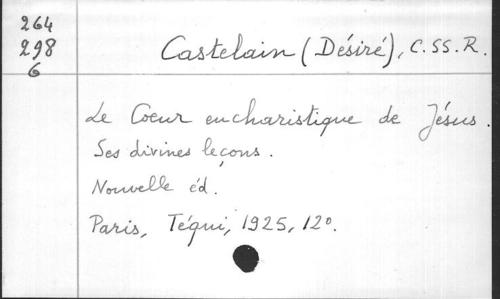 264
298
6
Castelain (Désiré), C.SS.R.
Le Coeur eucharistique de Jésus.
Ses divines leçons.
Nouvelle éd.
Paris, Téqui, 1925, 12º.